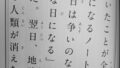 いたことが全
になるノート
日は争いのな
な日になる」
。翌日、地
人類が消え